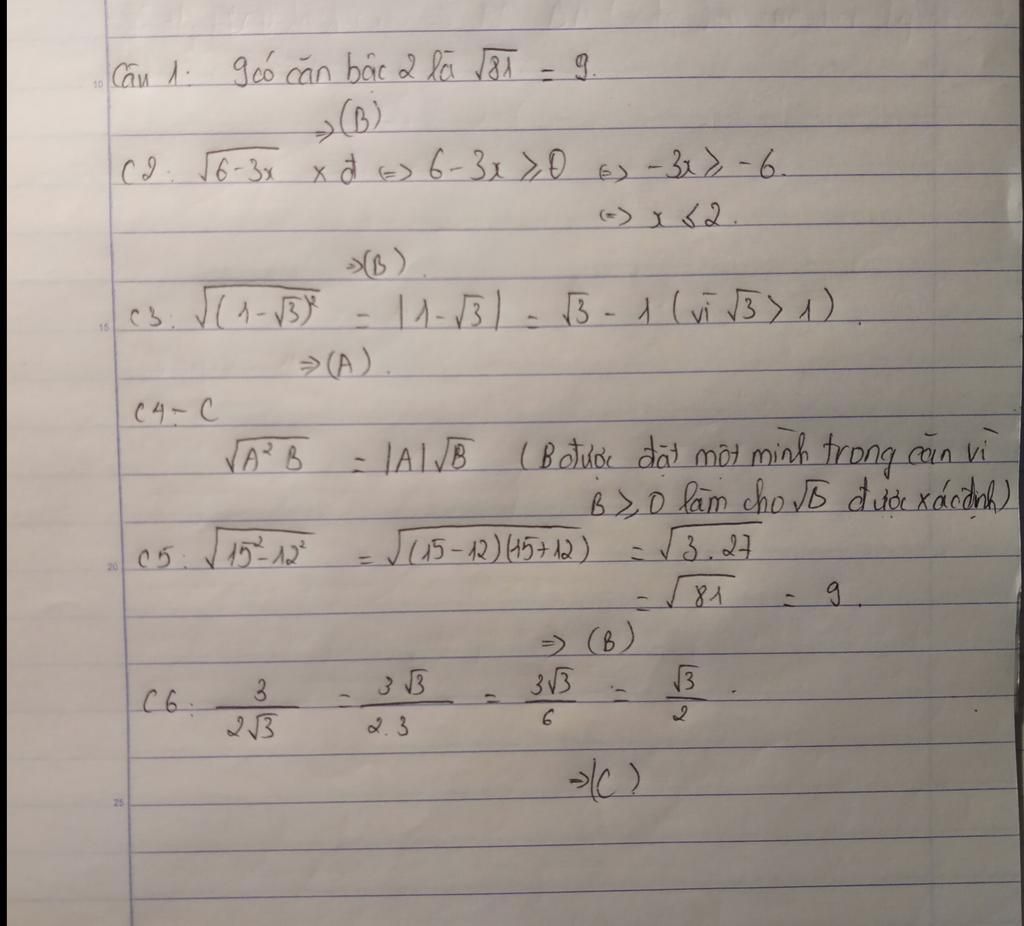 10
Câu 1: 9 có căn bậc 2 là √81 = 9.
⇒ (B)
C2: √(6-3x) xđ ⇔ 6-3x ≥ 0 ⇔ -3x ≥ -6.
⇔ x ≤ 2.
⇒ (B).
15
C3: √((1-√3)²) = |1-√3| = √3 - 1 (vì √3 > 1).
⇒ (A).
C4: C
√(A²B) = |A|√B (B được đặt một mình trong căn vì
B ≥ 0 làm cho √B được xác định)
20
C5: √(15²-12²) = √((15-12)(15+12)) = √(3.27)
= √81 = 9.
⇒ (B)
C6: 3/(2√3) = 3√3/(2.3) = 3√3/6 = √3/2.
⇒ (C)
25